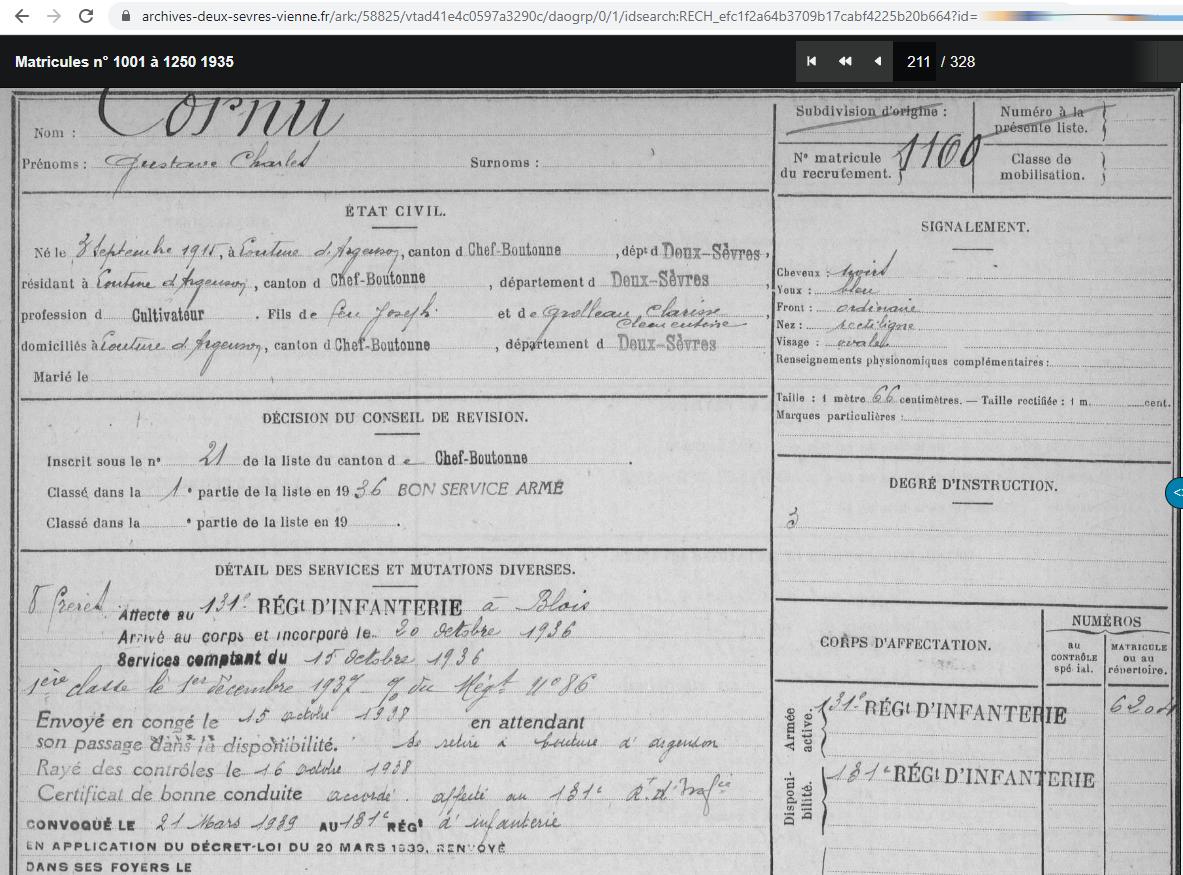 archives-deux-sevres-vienne.fr/ark:/58825/vtad41e4c0597a3290c/daogrp/0/1/idsearch:RECH_efc1f2a64b3709b17cabf4225b20b664?id=
Matricules n° 1001 à 1250 1935
211 / 328
Cornu
Nom :
Prénoms : Gustave Charles Surnoms :
ÉTAT CIVIL.
Né le 3 Septembre 1915, à Couture d'Argenson, canton d Chef-Boutonne, dépt d Deux-Sèvres,
résidant à Couture d'Argenson, canton d Chef-Boutonne, département d Deux-Sèvres,
profession d Cultivateur. Fils de feu Joseph et de Grolleau, Clarisse
Clementine
domiciliés à Couture d'Argenson, canton d Chef-Boutonne, département d Deux-Sèvres
Marié le
DÉCISION DU CONSEIL DE REVISION.
Inscrit sous le n° 21 de la liste du canton d e Chef-Boutonne.
Classé dans la 1e partie de la liste en 1936 BON SERVICE ARMÉ
Classé dans la e partie de la liste en 19 .
DÉTAIL DES SERVICES ET MUTATIONS DIVERSES.
Affecté au 131e RÉGt D'INFANTERIE à Blois
Arrivé au corps et incorporé le 20 octobre 1936
Services comptant du 15 octobre 1936
1ère classe le 1er décembre 1937 du Régt n° 86
Envoyé en congé le 15 octobre 1938 en attendant
son passage dans la disponibilité. Se retire à Couture d'argenson
Rayé des contrôles le 16 octobre 1938
Certificat de bonne conduite accordé. affecté au 131e Rt d'Infie
CONVOQUÉ LE 21 Mars 1939 AU 131e RÉGt d'infanterie
EN APPLICATION DU DÉCRET-LOI DU 20 MARS 1939, RENVOYÉ
DANS SES FOYERS LE
Subdivision d'origine :
Numéro à la
présente liste.
N° matricule
du recrutement. 1160
Classe de
mobilisation.
SIGNALEMENT.
Cheveux : noirs
Yeux : bleu
Front : ordinaire
Nez : rectiligne
Visage : ovale
Renseignements physionomiques complémentaires :
Taille : 1 mètre 66 centimètres. — Taille rectifiée : 1 m. cent.
Marques particulières :
DEGRÉ D'INSTRUCTION.
3
CORPS D'AFFECTATION.
NUMÉROS
au
CONTRÔLE
spécial.
MATRICULE
ou au
répertoire.
Armée
active.
131e RÉGt D'INFANTERIE
Disponi-
bilité.
131e RÉGt D'INFANTERIE